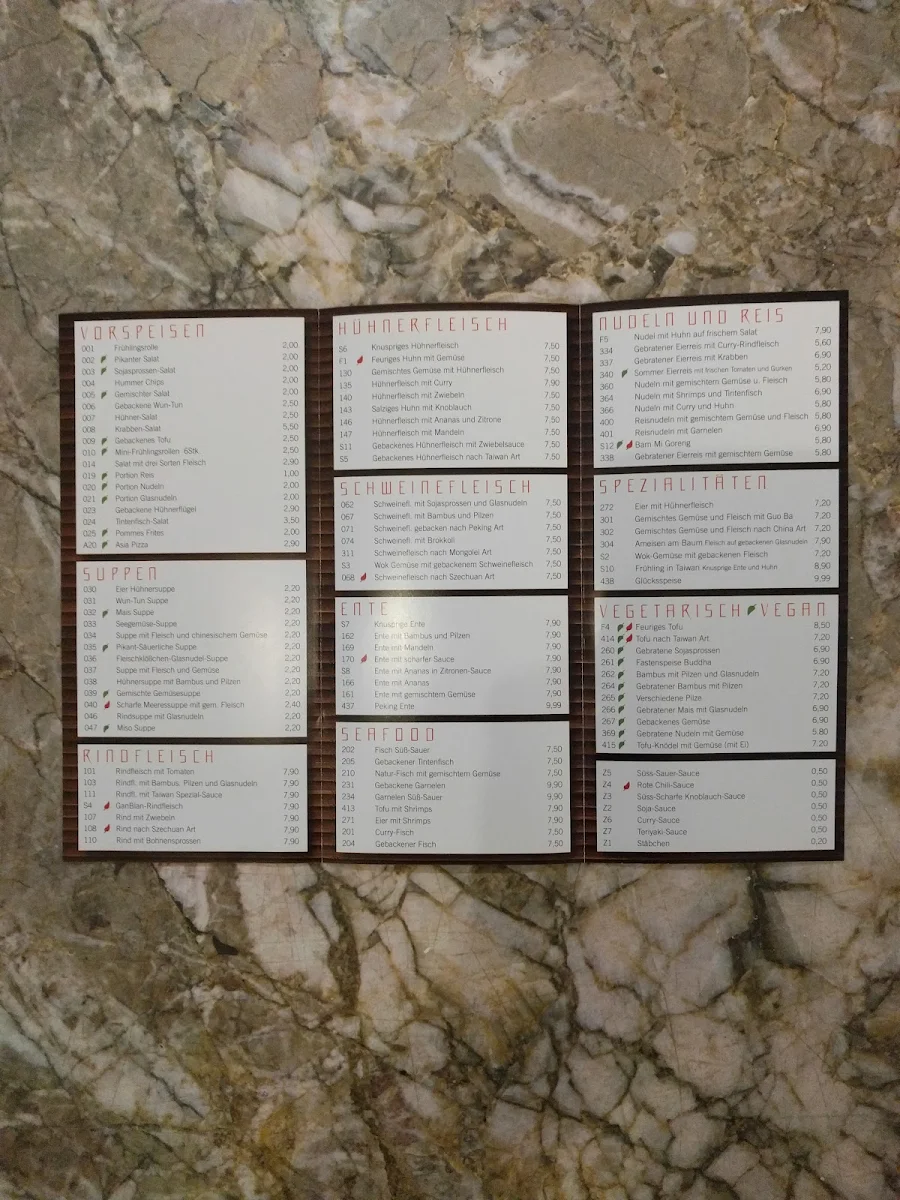 VORSPEISEN
001 Frühlingsrolle 2,00
002 Pikanter Salat 2,00
003 Sojasprossen-Salat 2,00
004 Hummer Chips 2,00
005 Gemischter Salat 2,00
006 Gebackene Wun-Tun 2,50
007 Hühner-Salat 2,50
008 Krabben-Salat 5,50
009 Gebackenes Tofu 2,50
010 Mini-Frühlingsrollen 6Stk 2,50
014 Salat mit drei Sorten Fleisch 2,90
019 Portion Reis 1,00
020 Portion Nudeln 2,00
021 Portion Glasnudeln 2,00
023 Gebackene Hühnerflügel 2,90
024 Tintenfisch-Salat 3,50
025 Pommes Frites 2,00
A20 Asia Pizza 2,90
SUPPEN
030 Eier Hühnersuppe 2,20
031 Wun-Tun Suppe 2,20
032 Mais Suppe 2,20
033 Seegemüse-Suppe 2,20
034 Suppe mit Fleisch und chinesischem Gemüse 2,20
035 Pikant-Säuerliche Suppe 2,20
036 Fleischklößchen-Glasnudel-Suppe 2,20
037 Suppe mit Fleisch und Gemüse 2,20
038 Hühnersuppe mit Bambus und Pilzen 2,20
039 Gemischte Gemüsesuppe 2,20
040 Scharfe Meeressuppe mit gem. Fleisch 2,40
046 Rindsuppe mit Glasnudeln 2,20
047 Miso Suppe 2,20
RINDFLEISCH
101 Rindfleisch mit Tomaten 7,90
103 Rindfl. mit Bambus, Pilzen und Glasnudeln 7,90
111 Rindfl. mit Taiwan Spezial-Sauce 7,90
S4 GanBian-Rindfleisch 7,90
107 Rind mit Zwiebeln 7,90
108 Rind nach Szechuan Art 7,90
110 Rind mit Bohnensprossen 7,90
HÜHNERFLEISCH
S6 Knuspriges Hühnerfleisch 7,50
F1 Feuriges Huhn mit Gemüse 7,50
130 Gemischtes Gemüse mit Hühnerfleisch 7,50
135 Hühnerfleisch mit Curry 7,90
140 Hühnerfleisch mit Zwiebeln 7,50
143 Salziges Huhn mit Knoblauch 7,50
146 Hühnerfleisch mit Ananas und Zitrone 7,50
147 Hühnerfleisch mit Mandeln 7,50
S11 Gebackenes Hühnerfleisch mit Zwiebelsauce 7,50
S5 Gebackenes Hühnerfleisch nach Taiwan Art 7,50
SCHWEINEFLEISCH
062 Schweinefl. mit Sojasprossen und Glasnudeln 7,50
067 Schweinefl. mit Bambus und Pilzen 7,50
071 Schweinefl. gebacken nach Peking Art 7,50
074 Schweinefl. mit Brokkoli 7,50
311 Schweinefleisch nach Mongolei Art 7,50
S3 Wok Gemüse mit gebackenem Schweinefleisch 7,50
068 Schweinefleisch nach Szechuan Art 7,50
ENTE
S7 Knusprige Ente 7,90
162 Ente mit Bambus und Pilzen 7,90
169 Ente mit Mandeln 7,90
170 Ente mit scharfer Sauce 7,90
S8 Ente mit Ananas in Zitronen-Sauce 7,90
166 Ente mit Ananas 7,90
161 Ente mit gemischtem Gemüse 7,90
437 Peking Ente 9,99
SEAFOOD
202 Fisch Süß-Sauer 7,50
205 Gebackener Tintenfisch 7,50
210 Natur-Fisch mit gemischtem Gemüse 7,50
231 Gebackene Garnelen 9,90
234 Garnelen Süß-Sauer 9,90
413 Tofu mit Shrimps 7,90
271 Eier mit Shrimps 7,90
201 Curry-Fisch 7,50
204 Gebackener Fisch 7,50
NUDELN UND REIS
F5 Nudel mit Huhn auf frischem Salat 7,90
334 Gebratener Eierreis mit Curry-Rindfleisch 5,60
337 Gebratener Eierreis mit Krabben 6,90
340 Sommer Eierreis mit frischen Tomaten und Gurken 5,20
360 Nudeln mit gemischtem Gemüse u. Fleisch 5,80
364 Nudeln mit Shrimps und Tintenfisch 6,90
366 Nudeln mit Curry und Huhn 5,80
400 Reisnudeln mit gemischtem Gemüse und Fleisch 5,80
401 Reisnudeln mit Garnelen 6,90
S12 Bam Mi Goreng 5,80
338 Gebratener Eierreis mit gemischtem Gemüse 5,80
SPEZIALITÄTEN
272 Eier mit Hühnerfleisch 7,20
301 Gemischtes Gemüse und Fleisch mit Guo Ba 7,20
302 Gemischtes Gemüse und Fleisch nach China Art 7,20
304 Ameisen am Baum Fleisch auf gebackenen Glasnudeln 7,90
S2 Wok-Gemüse mit gebackenen Fleisch 7,20
S10 Frühling in Taiwan Knusprige Ente und Huhn 8,90
438 Glücksspeise 9,99
VEGETARISCH VEGAN
F4 Feuriges Tofu 8,50
414 Tofu nach Taiwan Art 7,20
260 Gebratene Sojasprossen 6,90
261 Fastenspeise Buddha 6,90
262 Bambus mit Pilzen und Glasnudeln 7,20
264 Gebratener Bambus mit Pilzen 7,20
265 Verschiedene Pilze 7,20
266 Gebratener Mais mit Glasnudeln 6,90
267 Gebackenes Gemüse 6,90
369 Gebratene Nudeln mit Gemüse 5,80
415 Tofu-Knödel mit Gemüse (mit Ei) 7,20
Z5 Süss-Sauer-Sauce 0,50
Z4 Rote Chili-Sauce 0,50
Z3 Süss-Scharfe Knoblauch-Sauce 0,50
Z2 Soja-Sauce 0,50
Z6 Curry-Sauce 0,50
Z7 Teriyaki-Sauce 0,50
Z1 Stäbchen 0,20